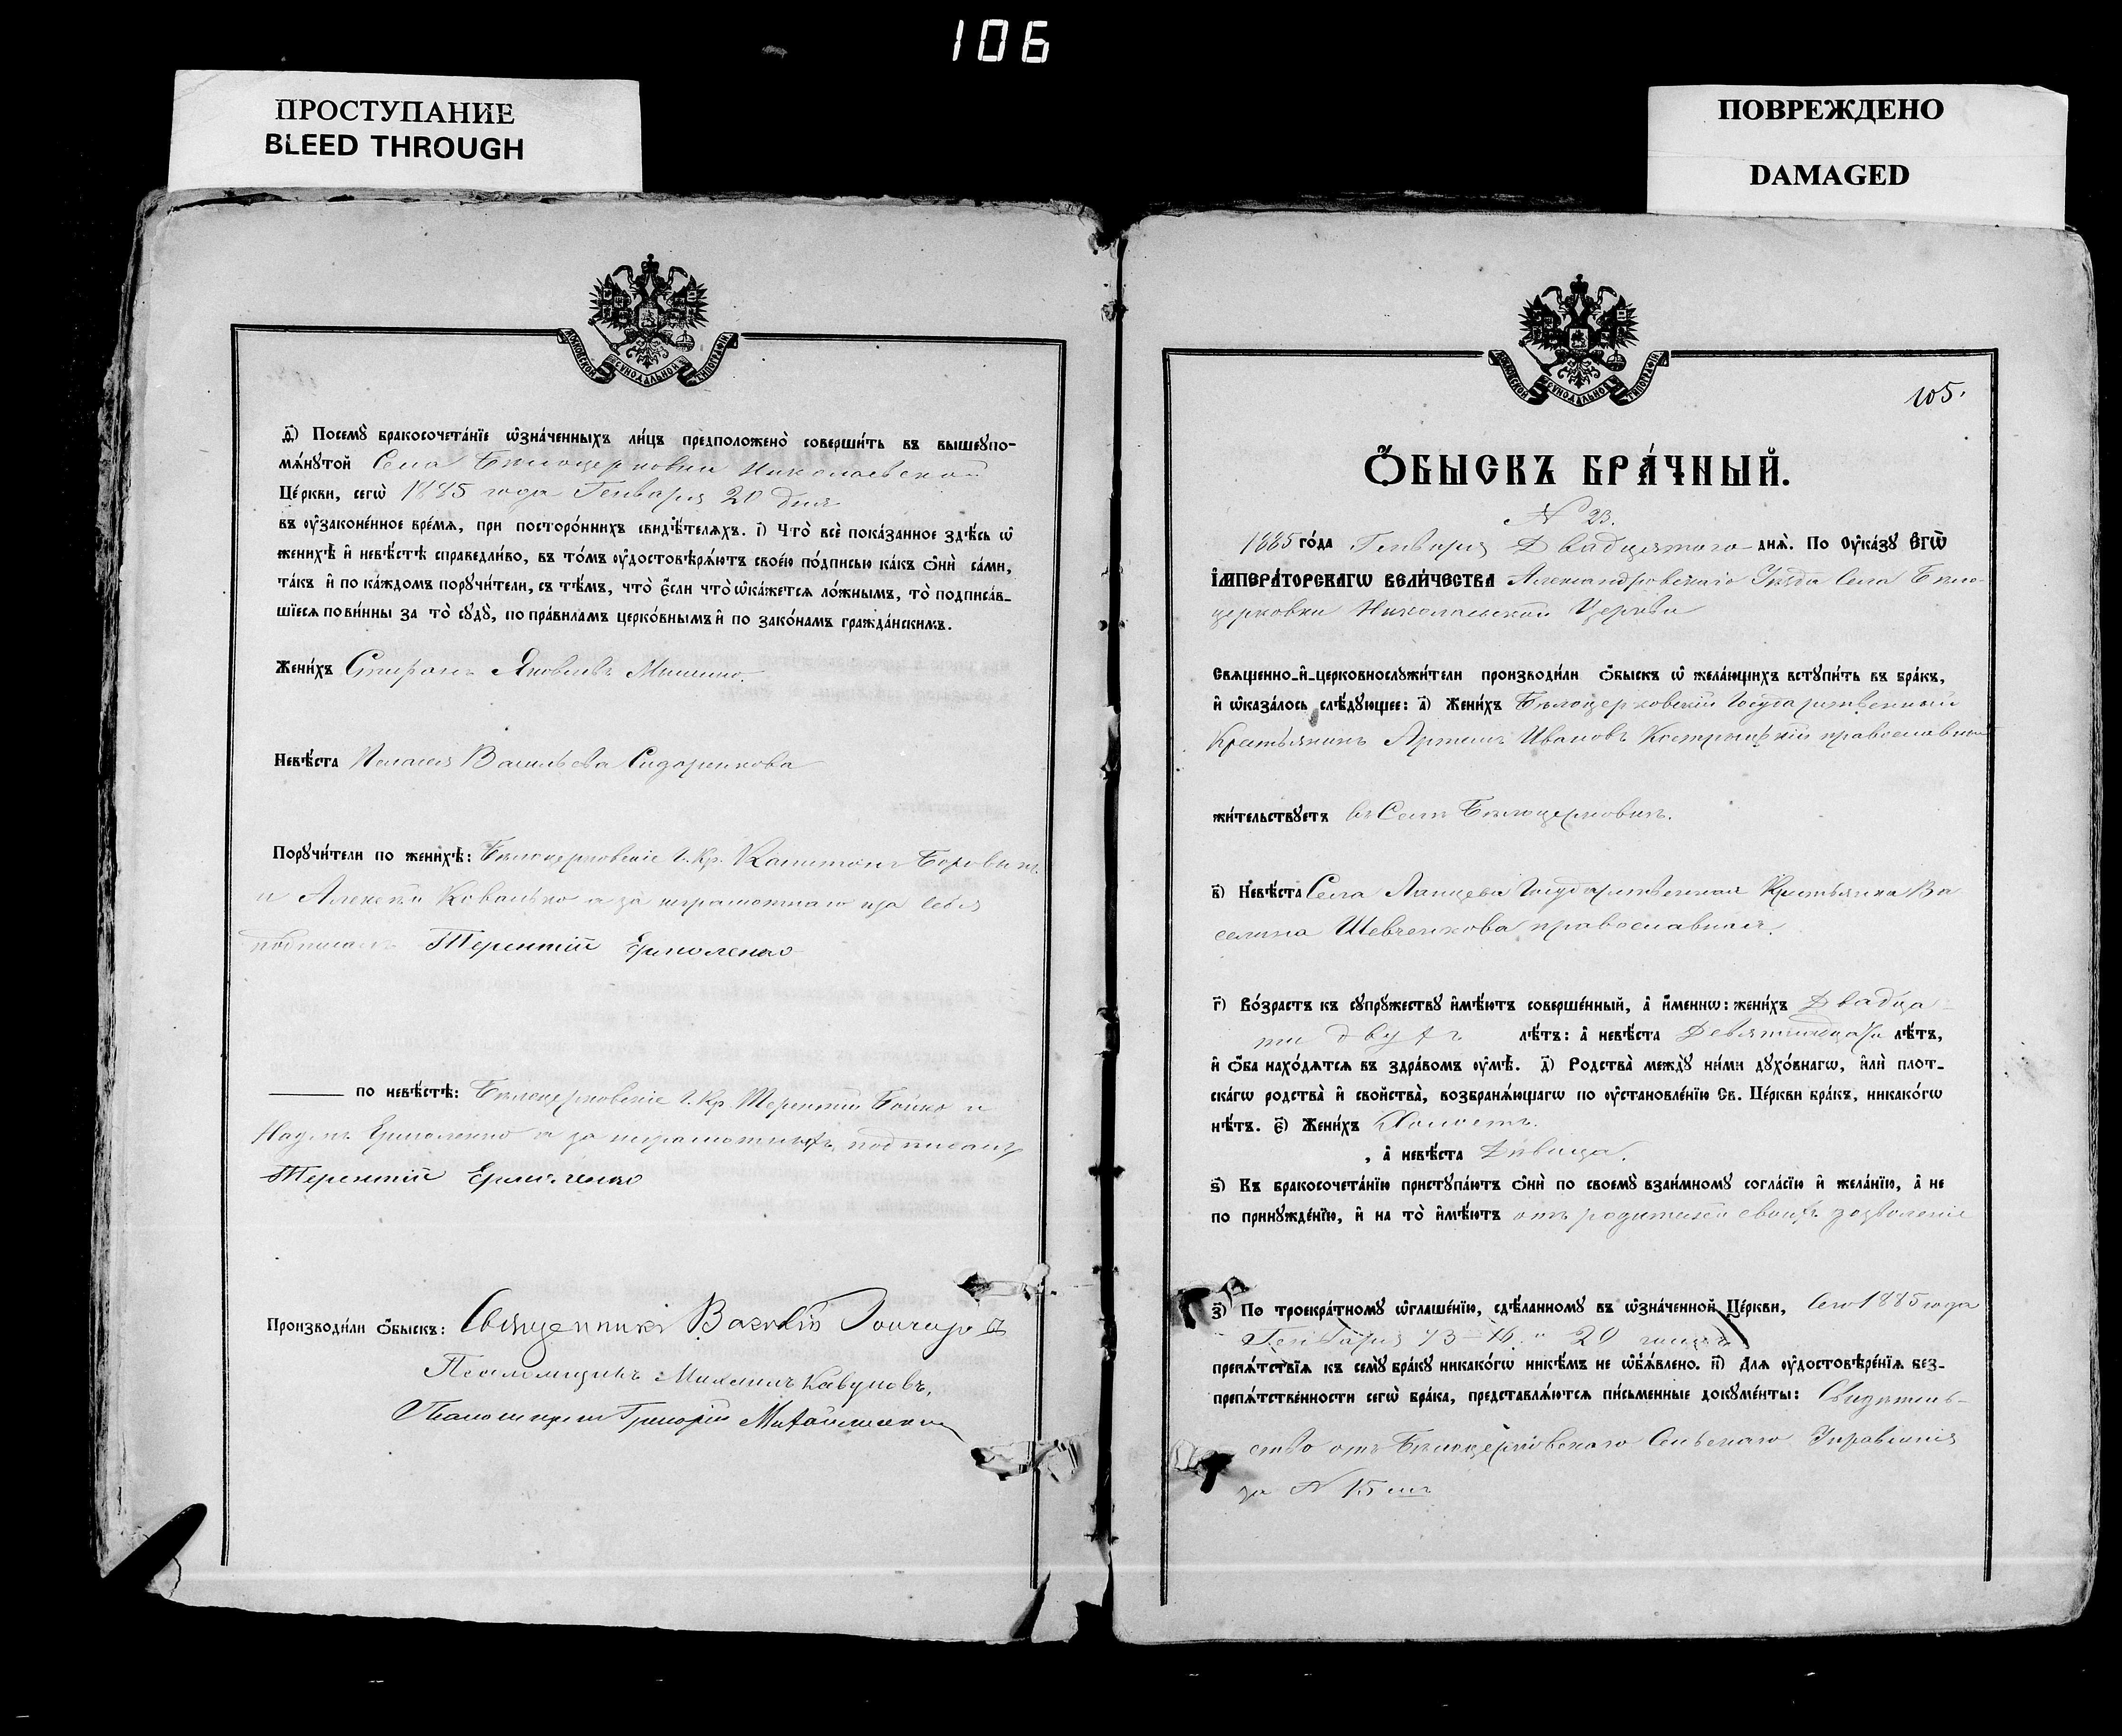 106
ПРОСТУПАНИЕ
BLEED THROUGH
ПОВРЕЖДЕНО
DAMAGED
МОСКОВСКОЙ СѴНОДАЛЬНОЙ ТИПОГРАФІИ
д҃) Посемꙋ̀ бракосочета́нїе ѡ҆зна́ченныхъ ли́цъ предположено̀ соверши́ть въ вышеꙋпо-
мѧ́нꙋтой Села Бѣлоцерковки Николаевской
Це́ркви, сегѡ̀ 1885 года Генваря 20 дня
въ ᲂу҆законе́нное вре́мѧ, при посторо́ннихъ свидѣ́телѧхъ. і҃) Что̀ всѐ пока́занное здѣ́сь ѡ҆
женихѣ̀ и҆ невѣ́стѣ справедли́во, въ то́мъ ᲂу҆достовѣрѧ́ютъ свое́ю по́дписью ка́къ ѻ҆нѝ са́ми,
та́къ и҆ по ка́ждомъ порꙋчи́тели, съ тѣ́мъ, что̀ є҆́сли что̀ ѡ҆ка́жетсѧ ло́жнымъ, то̀ подписа́в-
шїесѧ пови́нны за то̀ сꙋдꙋ̀, по пра́виламъ церко́внымъ и҆ по зако́намъ гражда́нскимъ.
Жени́хъ Спиронъ Яковлевъ
Невѣ́ста Пелагея Васильева Сидоренкова
Порꙋчи́тели по женихѣ̀: Бѣлоцерковскіе Г. Кр. Капитонъ Боровикъ
и Алексѣй Ковалько а за неграмотнаго и за себя
подписалъ Терентій Ермоленко
по невѣ́стѣ: Бѣлоцерковскіе Г. Кр. Терентій Бойко и
Наумъ Ермоленко а за неграмотныхъ подписалъ
Терентій Ермоленко
Производи́ли ѻ҆́быскъ: Священникъ Гончаровъ
Псаломщикъ Михаилъ Кавуновъ.
Григорій
МОСКОВСКОЙ СѴНОДАЛЬНОЙ ТИПОГРАФІИ
105.
Ѻ҆́БЫСКЪ БРА́ЧНЫЙ.
N 23.
1885 го́да Генваря Двадцятого днѧ̀. По ᲂу҆ка́зꙋ Є҆гѡ̀
І҆мпера́торскагѡ Вели́чества Александровскаго Уѣзда Села Бѣло-
церковки Николаевской Церкви
Свѧще́нно-и҆-церковнослꙋжи́тели производи́ли ѻ҆́быскъ ѡ҆ жела́ющихъ встꙋпи́ть въ бра́къ,
и҆ ѡ҆каза́лось слѣ́дꙋющее: а҃) Жени́хъ Бѣлоцерковскій Государственный
Крестьянинъ Артемъ Ивановъ православный
жи́тельствꙋетъ въ Селѣ Бѣлоцерковкѣ.
в҃) Невѣ́ста Села Государственная Крестьянка Ва
селина Шевченкова православная.
г҃) Во́зрастъ къ сꙋпрꙋ́жествꙋ и҆мѣ́ютъ соверше́нный, а҆ и҆́меннѡ: жени́хъ Двадца
ти двухъ лѣ́тъ: а҆ невѣ́ста Девятнадцати лѣ́тъ,
и҆ ѻ҆́ба нахо́дѧтсѧ въ здра́вомъ ᲂу҆мѣ̀. д҃) Родства̀ междꙋ̀ ни́ми дꙋхо́внагѡ, и҆лѝ плот-
ска́гѡ родства̀ и҆ сво́йства̀, возбранѧ́ющагѡ по ᲂу҆становле́нїю Св. Це́ркви бра́къ, никако́гѡ
нѣ́тъ. є҃) Жени́хъ Холостъ.
, а҆ невѣ́ста Дѣвица.
ѕ҃) Къ бракосочета́нїю пристꙋпа́ютъ ѻ҆нѝ по своемꙋ̀ взаи́мномꙋ согла́сїю и҆ жела́нїю, а҆ не
по принꙋжде́нїю, и҆ на то̀ и҆мѣ́ютъ отъ родителей своихъ дозволеніе
з҃) По троекра́тномꙋ ѡ҆глаше́нїю, сдѣ́ланномꙋ въ ѡ҆зна́ченной Це́ркви, сего 1885 года
Генваря 13 – 16. и 20 числъ
препѧ́тствїѧ къ семꙋ̀ бра́кꙋ никако́гѡ никѣ́мъ не ѡ҆б̾ѧ́влено. и҃) Длѧ ᲂу҆достовѣре́нїѧ без-
препѧ́тственности сегѡ̀ бра́ка, представлѧ́ютсѧ пи́сьменные докꙋме́нты: Свидѣтель-
ство отъ Бѣлоцерковскаго Сельскаго Управленія
за N 15 мъ